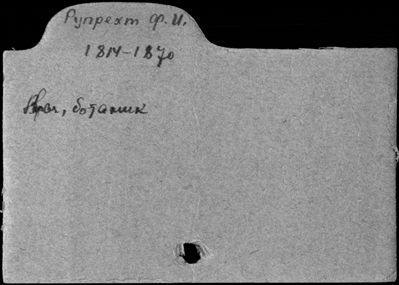 Рупрехт Ф. И.
1814-1870
Врач, ботаник